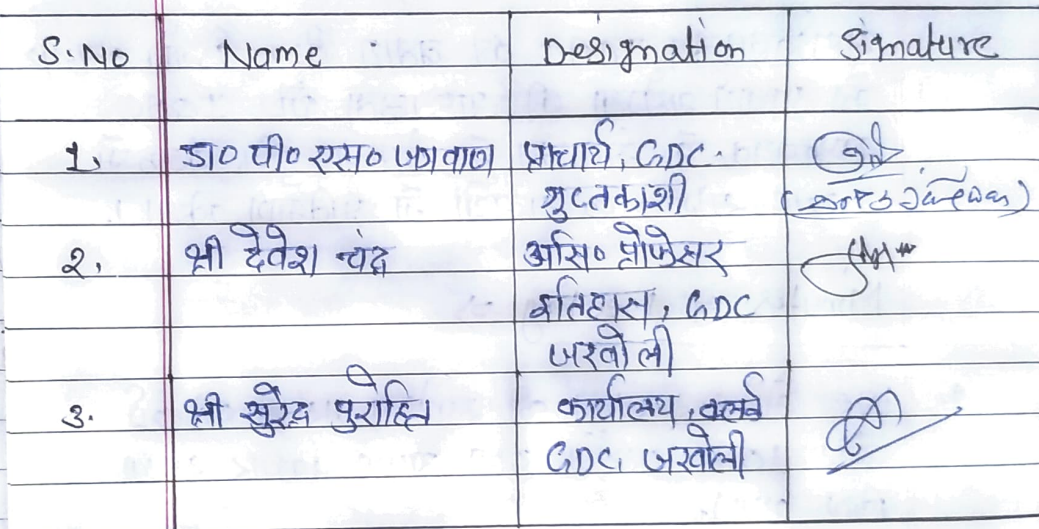 S.No Name Designation Signature
1. डा० पी० एस० जगवाण प्राचार्य, GDC.
गुप्तकाशी
2. श्री देवेश चंद्र असि० प्रोफेसर
इतिहास, GDC
जखोली
3. श्री सुरेंद्र पुरोहित कार्यालय, क्लर्क
GDC, जखोली